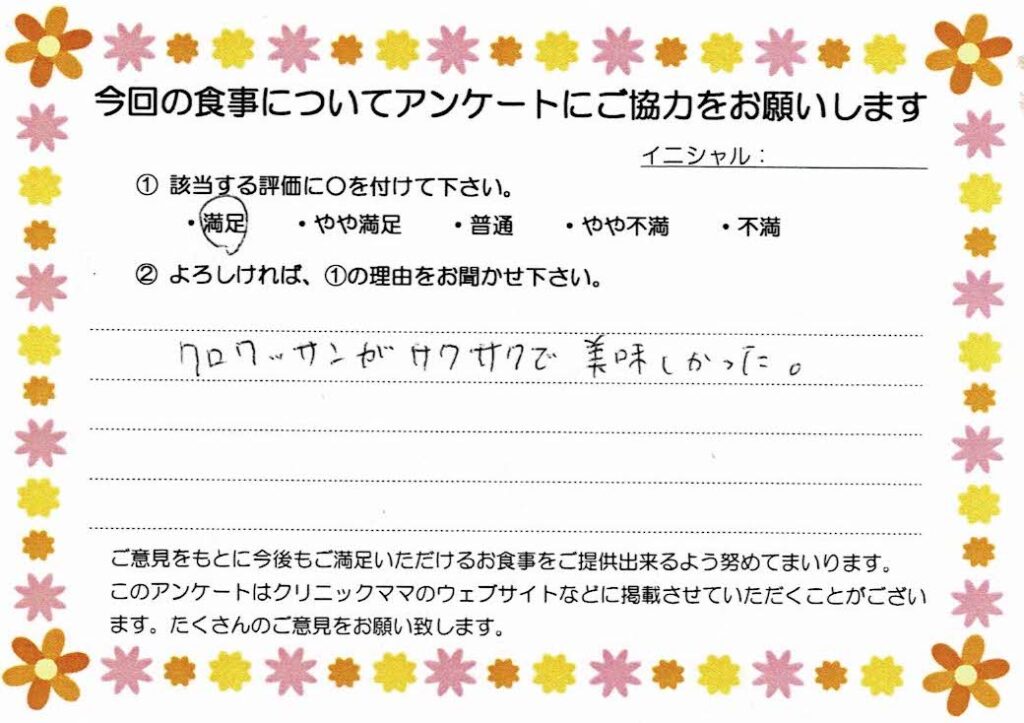 今回の食事についてアンケートにご協力をお願いします
イニシャル：
① 該当する評価に〇を付けて下さい。
・満足 ・やや満足 ・普通 ・やや不満 ・不満
② よろしければ、①の理由をお聞かせ下さい。
クロワッサンがサクサクで美味しかった。
ご意見をもとに今後もご満足いただけるお食事をご提供出来るよう努めてまいります。
このアンケートはクリニックママのウェブサイトなどに掲載させていただくことがござい
ます。たくさんのご意見をお願い致します。